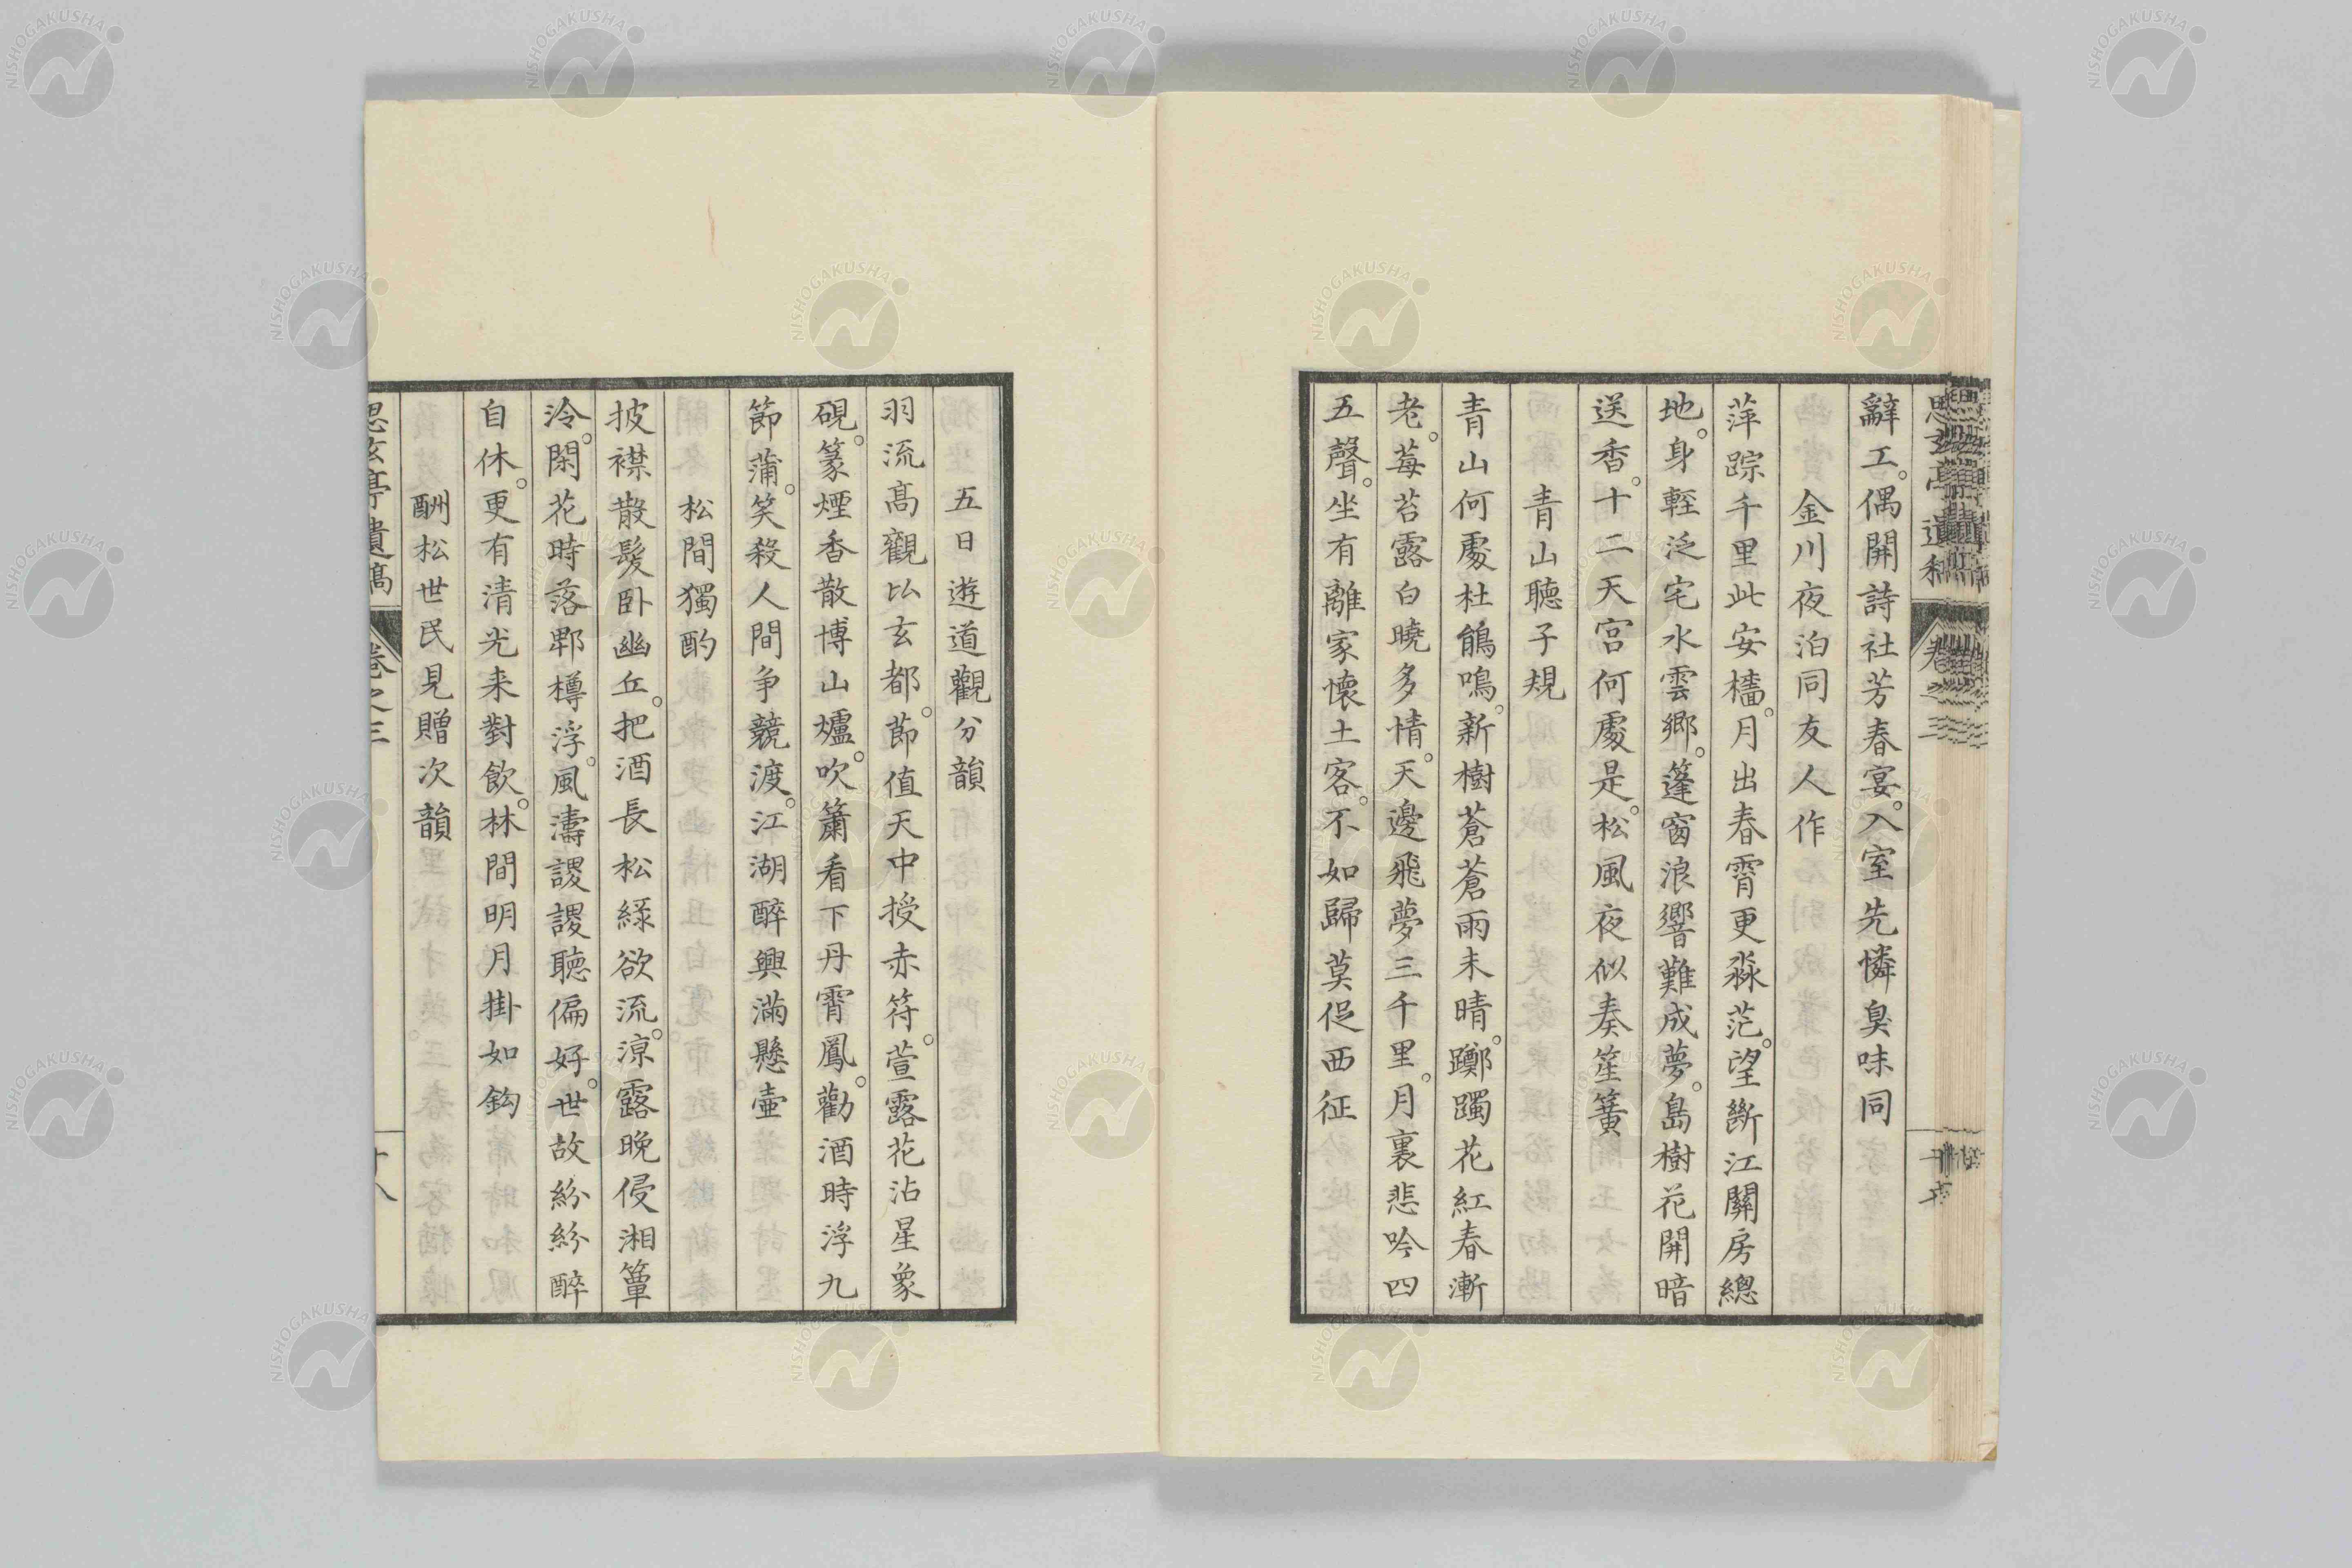 辭工。偶開詩社芳春宴。入室先憐臭味同
金川夜泊同友人作
萍踪千里此安檣。月出春霄更淼茫。望斷江關房總
地。身輕泛宅水雲鄉。篷窗浪響難成夢。島樹花開暗
送香。十二天宮何處是。松風夜似奏笙簧
青山聽子規
青山何處杜鵑鳴。新樹蒼蒼雨未晴。躑躅花紅春漸
老。莓苔露白曉多情。天邊飛夢三千里。月裏悲吟四
五聲。坐有離家懷土客。不如歸莫促西征
五日遊道觀分韻
羽流高觀比玄都。節值天中授赤符。萱露花沾星象
硯。篆煙香散博山爐。吹簫看下丹霄鳳。勸酒時浮九
節蒲。笑殺人間爭競渡。江湖醉興滿懸壺
松間獨酌
披襟散髮臥幽丘。把酒長松綠欲流。涼露晚侵湘簟
冷。閑花時落鄲樽浮。風濤謖謖聽偏好。世故紛紛醉
自休。更有清光来對飲。林間明月掛如鈎
酬松世民見贈次韻
思玄亭遺稿
卷之三
十八
NISHOGAKUSHA